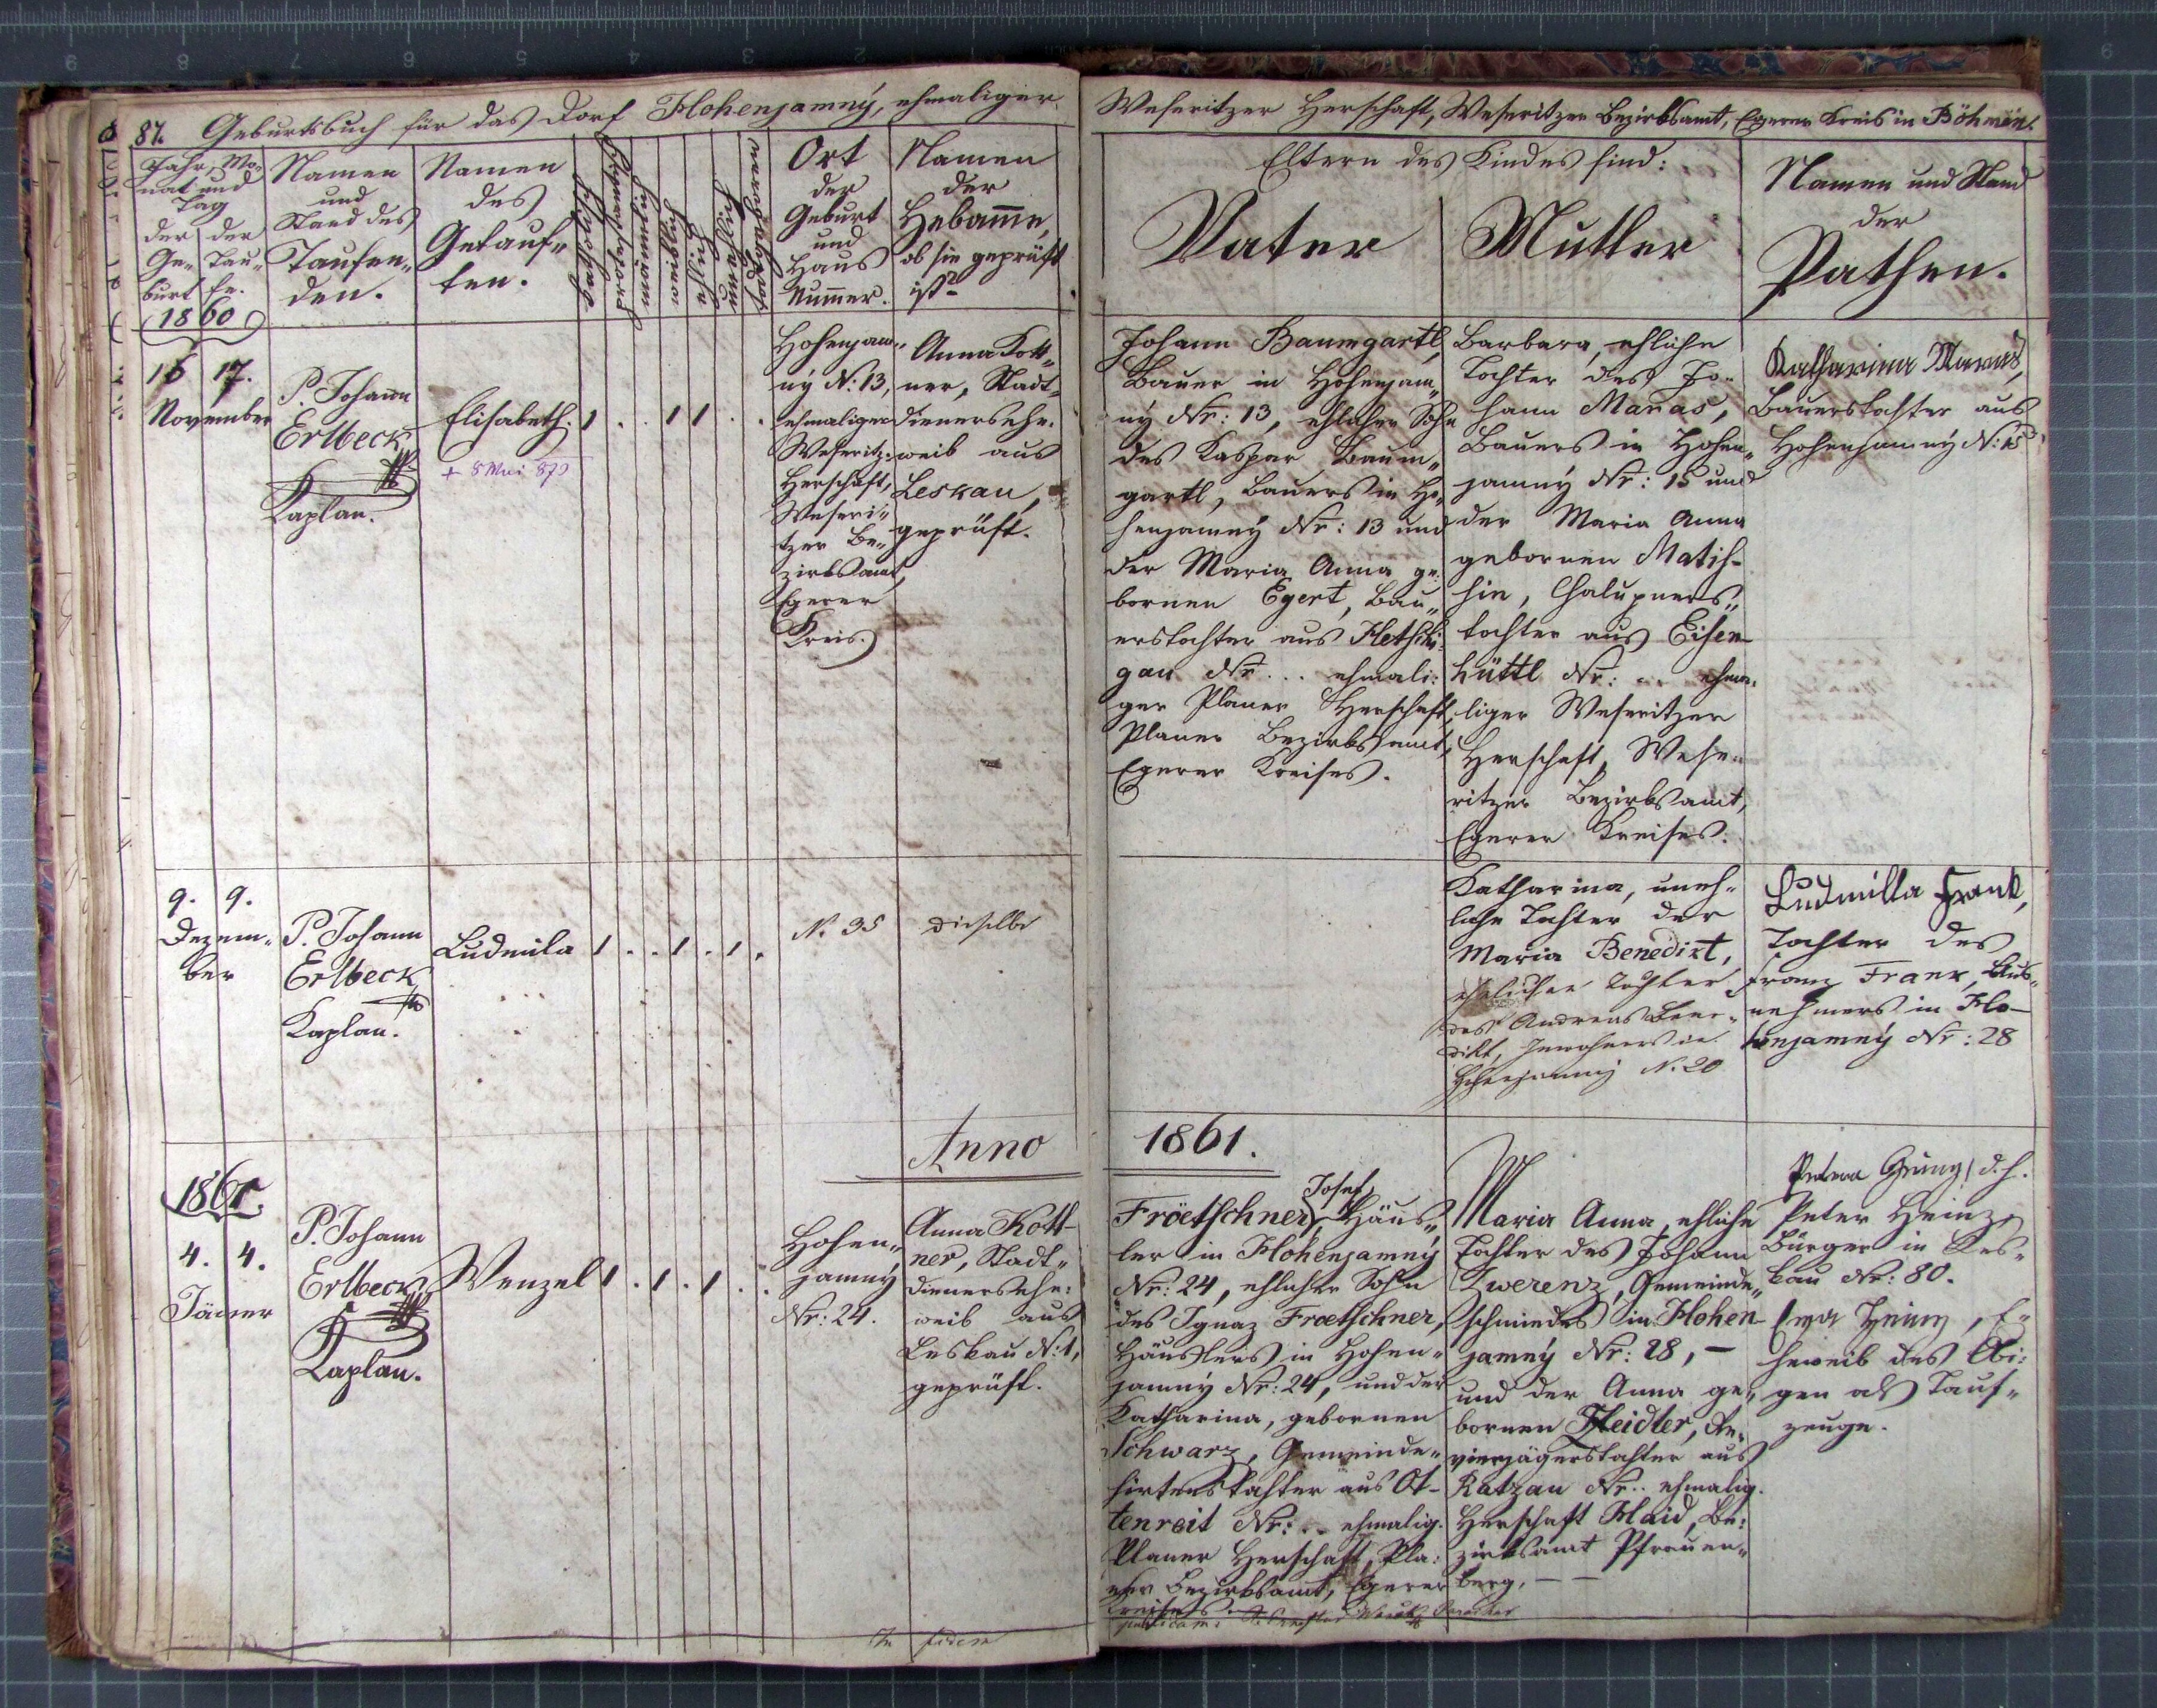 87. Geburtsbuch für das Dorf Hohenjamný, ehmaliger
Weseritzer Herschaft, Weseritzer Bezirksamt, Egerer Kreis in Böhmen.
Jahr, Mo-
nat und
Tag
der der
Ge- Tau-
burt fe.
1860
Namen
und
Stand des
Taufen-
den.
Namen
des
Getauf-
ten.
katholisch
protestantisch
männlich
weiblich
ehlich
unehlich
todtgeboren
Ort
der
Geburt
und
Haus
Nummer.
Namen
der
Hebamme,
ob sie geprüft
ist
Eltern des Kindes sind:
Vater
Mutter
Namen und Stand
der
Pathen.
16 17.
November
P. Johann
Erlbeck
Kaplan.
Elisabeth.
+ 8 Mai 879
1 . . 1 1 . .
Hohenjam-
ný N: 13,
ehmaliger
Weseritz:
Herschaft,
Weseri-
tzer Be-
zirksamt,
Egerer
Kreis.
Anna Kott-
ner, Stadt-
dienersehe-
weib aus
Leskau,
geprüft.
Johann Baumgartl,
Bauer in Hohenjam-
ný Nr: 13, ehlicher Sohn
des Kaspar Baum-
gartl, Bauers in Ho-
henjamný Nr: 13 und
der Maria Anna ge-
bornen Egert, Bau-
erstochter aus Hetschi-
gau Nr... ehmali:
ger Planer Herschaft,
Planer Bezirksamt,
Egerer Kreises.
Barbara, ehliche
Tochter des Jo-
hann Maras,
Bauers in Hohen-
jamný Nr: 15 und
der Maria Anna
gebornen Matis-
hin, Chalupners-
tochter aus Eisen-
hüttl Nr: .. ehma-
liger Weseritzer
Herschaft, Wese-
ritzer Bezirksamt,
Egerer Kreises.
Katharina Maras,
Bauerstochter aus
Hohenjamný N: 15
9. 9.
Dezem-
ber
P. Johann
Erlbeck
Kaplan.
Ludmila
1 . . 1 . 1 .
N. 35
dieselbe
Katharina, uneh-
liche Tochter der
Maria Benedikt,
ehelicher Tochter
des Andreas Bene-
dikt, Inwohners in
Hohenjamný N. 20
Ludmilla Frank,
Tochter des
Franz Frank, Aus-
nehmers in Ho-
henjamný Nr: 28
Anno 1861.
1861.
4. 4.
Jäner
P. Johann
Erlbeck
Kaplan.
Wenzel
1 . 1 . 1 . .
Hohen-
jamný
Nr: 24.
Anna Kott-
ner, Stadt-
dienersehe-
weib aus
Leskau N: 1,
geprüft.
Josef
Fröetschner, Häus-
ler in Hohenjamný
Nr: 24, ehlicher Sohn
des Ignaz Froetschner,
Häuslers in Hohen-
jamný Nr: 24, und der
Katharina, gebornen
Schwarz, Gemeinde-
hirtenstochter aus Ot-
tenreit Nr: .. ehmalig.
Planer Herschaft, Pla:
ner Bezirksamt, Egerer
Kreises.
Maria Anna, ehliche
Tochter des Johann
Zwerenz, Gemeinde-
schmiedes in Hohen-
jamný Nr: 28, —
und der Anna ge-
bornen Heidler, Re-
vierjägerstochter aus
Ratzau Nr.. ehmalig.
Herschaft Haid, Be:
zirksamt Pfrauen-
berg, — —
d. h.
Peter Heinz
Bürger in Les-
kau Nr: 80.
Eva Heinz, E-
heweib des Obi:
gen als Tauf-
zeuge.
In fidem
publicam: